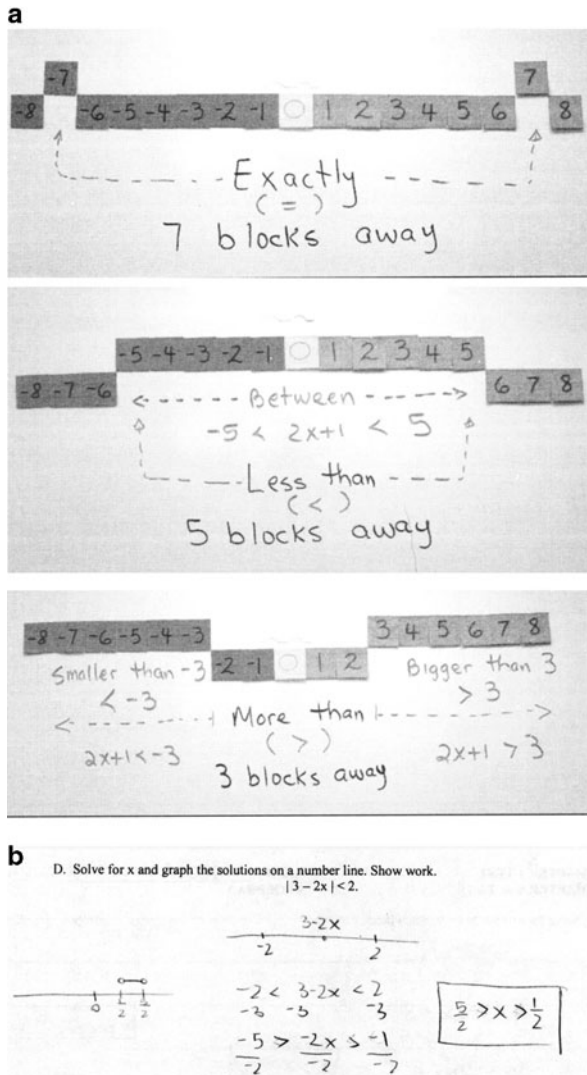 a
-7 7
-8 -6 -5 -4 -3 -2 -1 0 1 2 3 4 5 6 8
Exactly
( = )
7 blocks away
-5 -4 -3 -2 -1 0 1 2 3 4 5
-8 -7 -6 6 7 8
Between
-5 < 2x+1 < 5
Less than
( < )
5 blocks away
-8 -7 -6 -5 -4 -3 3 4 5 6 7 8
-2 -1 0 1 2
Smaller than -3 Bigger than 3
< -3 > 3
More than
( > )
2x+1 < -3 2x+1 > 3
3 blocks away
b
D. Solve for x and graph the solutions on a number line. Show work.
| 3 – 2x | < 2.
3-2x
-2 2
0 1/2 5/2
-2 < 3-2x < 2
-3 -3 -3
-5 > -2x > -1
-2 -2 -2
5/2 > x > 1/2